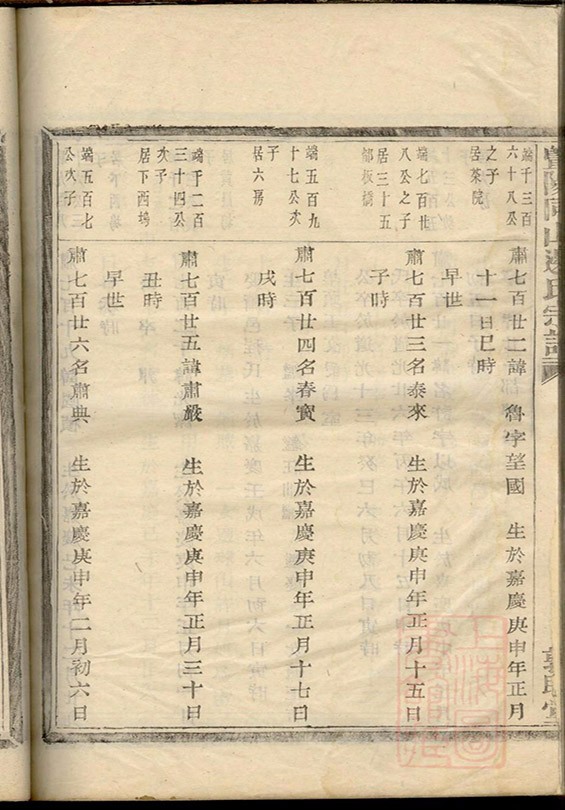 端千三百
六十八公
之子
居茶院
肅七百廿二諱魯字望國 生於嘉慶庚申年正月
十一日巳時
早世
端七百世
八公之子
居三十五
都板橋
肅七百廿三名泰來 生於嘉慶庚申年正月十五日
子時
端五百九
十七公次
子
居六房
肅七百廿四名春寳 生於嘉慶庚申年正月十七日
戌時
端千二百
三十四公
次子
居下西塢
肅七百廿五諱肅嚴 生於嘉慶庚申年正月三十日
丑時
早世
端五百七
公次子
肅七百廿六名肅典 生於嘉慶庚申年二月初六日
同山邊氏宗譜